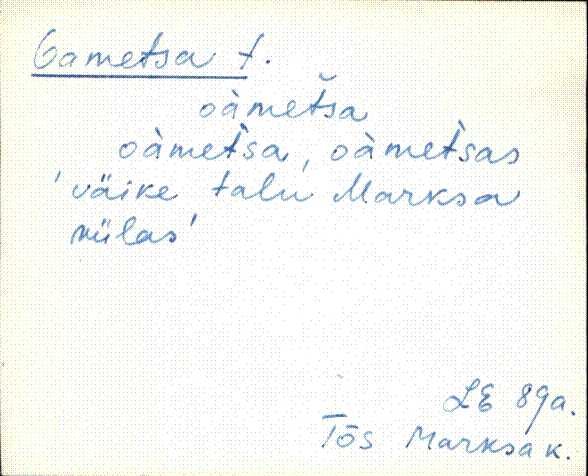 Oametsa t.
oàmet̆sa
oàmet̀sa, oàmet̀sas
'väike talu Marksa
külas'
LE 89a.
Tõs Marksa k.